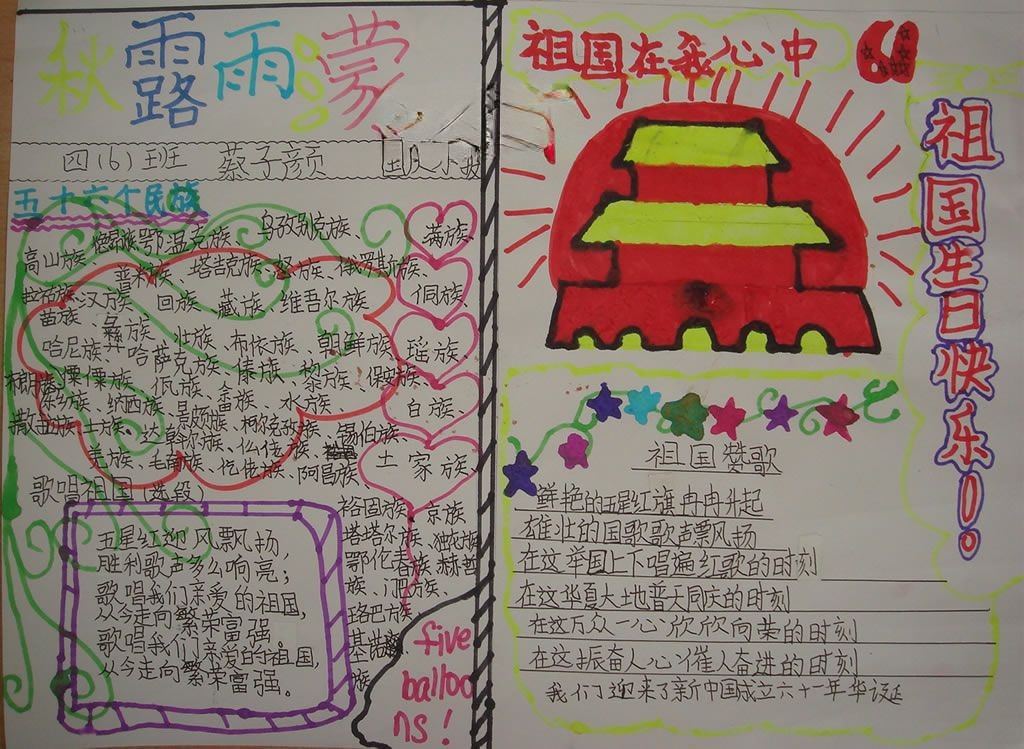 秋露雨蒙
四(6)班 蔡子颜
五十六个民族
高山族 鄂温克族 乌孜别克族 满族、
普米族、塔吉克族、怒族、俄罗斯族、
侗族、
汉族、回族、藏族、维吾尔族
苗族、彝族、壮族、布依族、朝鲜族、瑶族、
哈尼族 哈萨克族、傣族、黎族、保安族、
傈僳族 佤族、畲族、水族、白族、
东乡族、纳西族、景颇族、柯尔克孜族、
撒拉族、土族、达斡尔族、仫佬族、锡伯族、
羌族、毛南族、仡佬族、阿昌族、土家族、
裕固族、京族
塔塔尔族、独龙族
鄂伦春族、赫哲
族、门巴族、
珞巴族、
基诺
族
歌唱祖国(选段)
五星红迎风飘扬,
胜利歌声多么响亮;
歌唱我们亲爱的祖国,
从今走向繁荣富强。
歌唱我们亲爱的祖国,
从今走向繁荣富强。
five
balloo
ns!
祖国在我心中
祖国生日快乐!
祖国赞歌
鲜艳的五星红旗冉冉升起
雄壮的国歌歌声飘风扬
在这举国上下唱遍红歌的时刻
在这华夏大地普天同庆的时刻
在这万众一心欣欣向荣的时刻
在这振奋人心催人奋进的时刻
我们迎来了新中国成立六十一年华诞